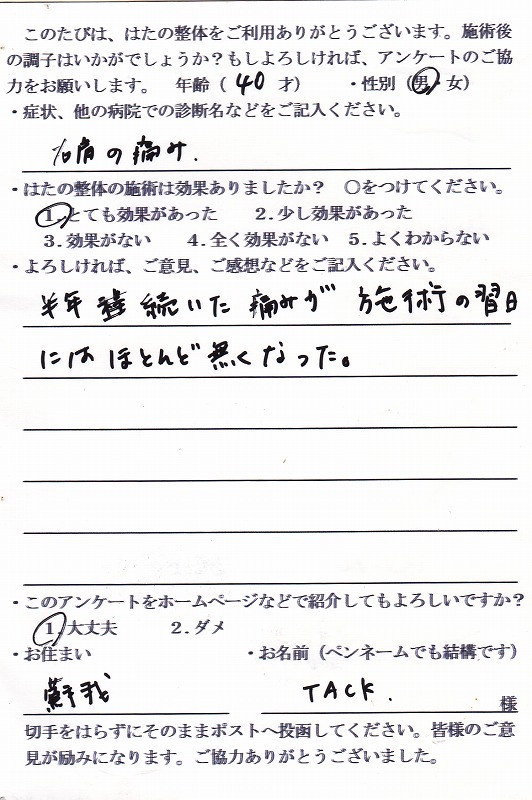 このたびは、はたの整体をご利用ありがとうございます。施術後
の調子はいかがでしょうか？もしよろしければ、アンケートのご協
力をお願いします。 年齢（ 40 才） ・性別（男・女）
・症状、他の病院での診断名などをご記入ください。
右肩の痛み.
・はたの整体の施術は効果ありましたか？ ○をつけてください。
1.とても効果があった 2.少し効果があった
3.効果がない 4.全く効果がない 5.よくわからない
・よろしければ、ご意見、ご感想などをご記入ください。
半年 続いた 痛みが 施術の翌日
には ほとんど 無くなった。
・このアンケートをホームページなどで紹介してもよろしいですか？
1.大丈夫 2.ダメ
・お住まい ・お名前（ペンネームでも結構です）
蘇我 TACK. 様
切手をはらずにそのままポストへ投函してください。皆様のご意
見が励みになります。ご協力ありがとうございました。